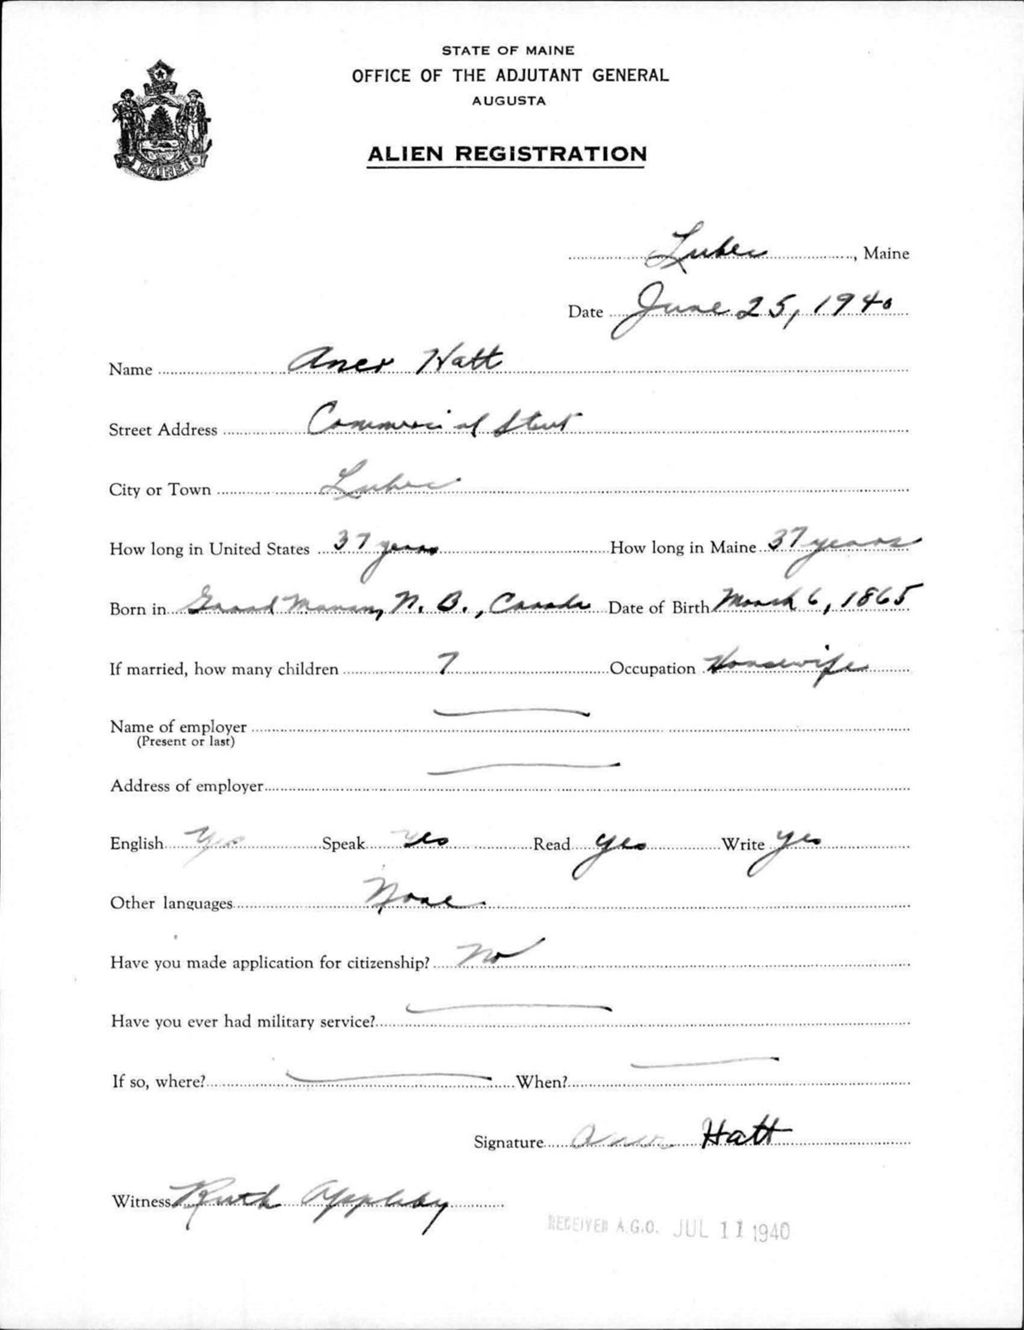 STATE OF MAINE
OFFICE OF THE ADJUTANT GENERAL
AUGUSTA
ALIEN REGISTRATION
MAINE
Lubec, Maine
Date June 25, 1940
Name Aner Hatt
Street Address Commercial Street
City or Town Lubec
How long in United States 37 years How long in Maine 37 years
Born in Grand Manan, N. B., Canada Date of Birth March 6, 1865
If married, how many children 7 Occupation Housewife
Name of employer
(Present or last)
Address of employer
English Yes Speak Yes Read Yes Write Yes
Other languages None.
Have you made application for citizenship? No
Have you ever had military service?
If so, where? When?
Signature Aner Hatt
Witness Ruth Appleby
RECEIVED A.G.O. JUL 11 1940